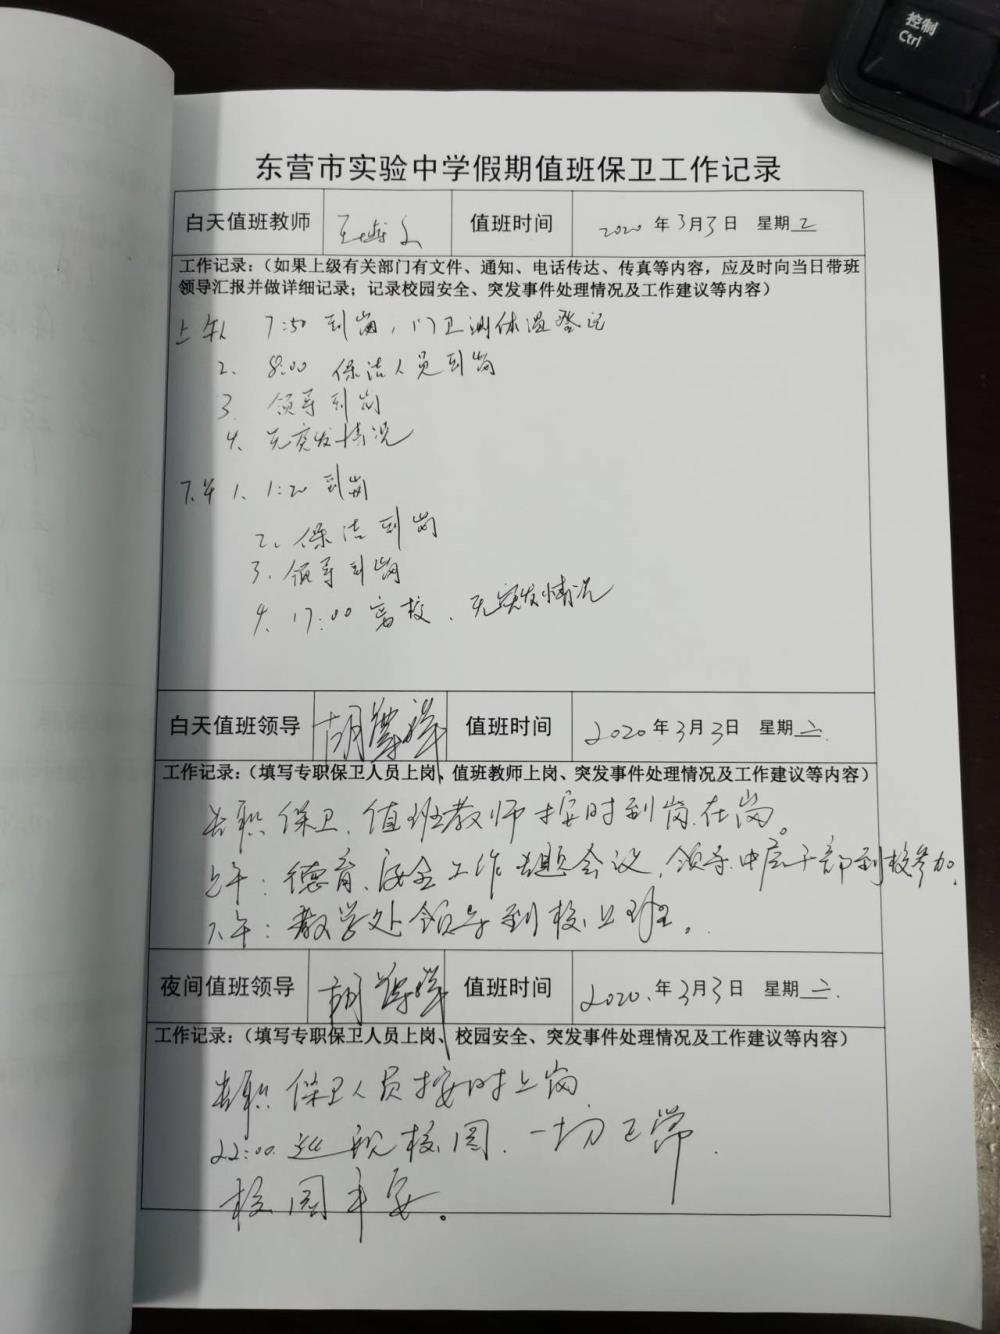 控制
Ctrl
东营市实验中学假期值班保卫工作记录
白天值班教师 值班时间 2020年3月3日 星期二
工作记录：（如果上级有关部门有文件、通知、电话传达、传真等内容，应及时向当日带班
领导汇报并做详细记录；记录校园安全、突发事件处理情况及工作建议等内容）
上午1、7:50 到岗，门卫测体温登记
2、8:00 保洁人员到岗
3、领导到岗
4、无突发情况
下午1、1:20 到岗
2、保洁到岗
3、领导到岗
4、17:00 离校、无突发情况
白天值班领导 胡 值班时间 2020年3月3日 星期二.
工作记录：（填写专职保卫人员上岗、值班教师上岗、突发事件处理情况及工作建议等内容）
专职保卫、值班教师按时到岗在岗。
上午：德育、安全工作专题会议，领导、中层干部到校参加。
下午：教学处领导到校上班。
夜间值班领导 胡 值班时间 2020.年3月3日 星期二.
工作记录：（填写专职保卫人员上岗、校园安全、突发事件处理情况及工作建议等内容）
专职保卫人员按时上岗
22:00 巡视校园，一切正常.
校园平安。